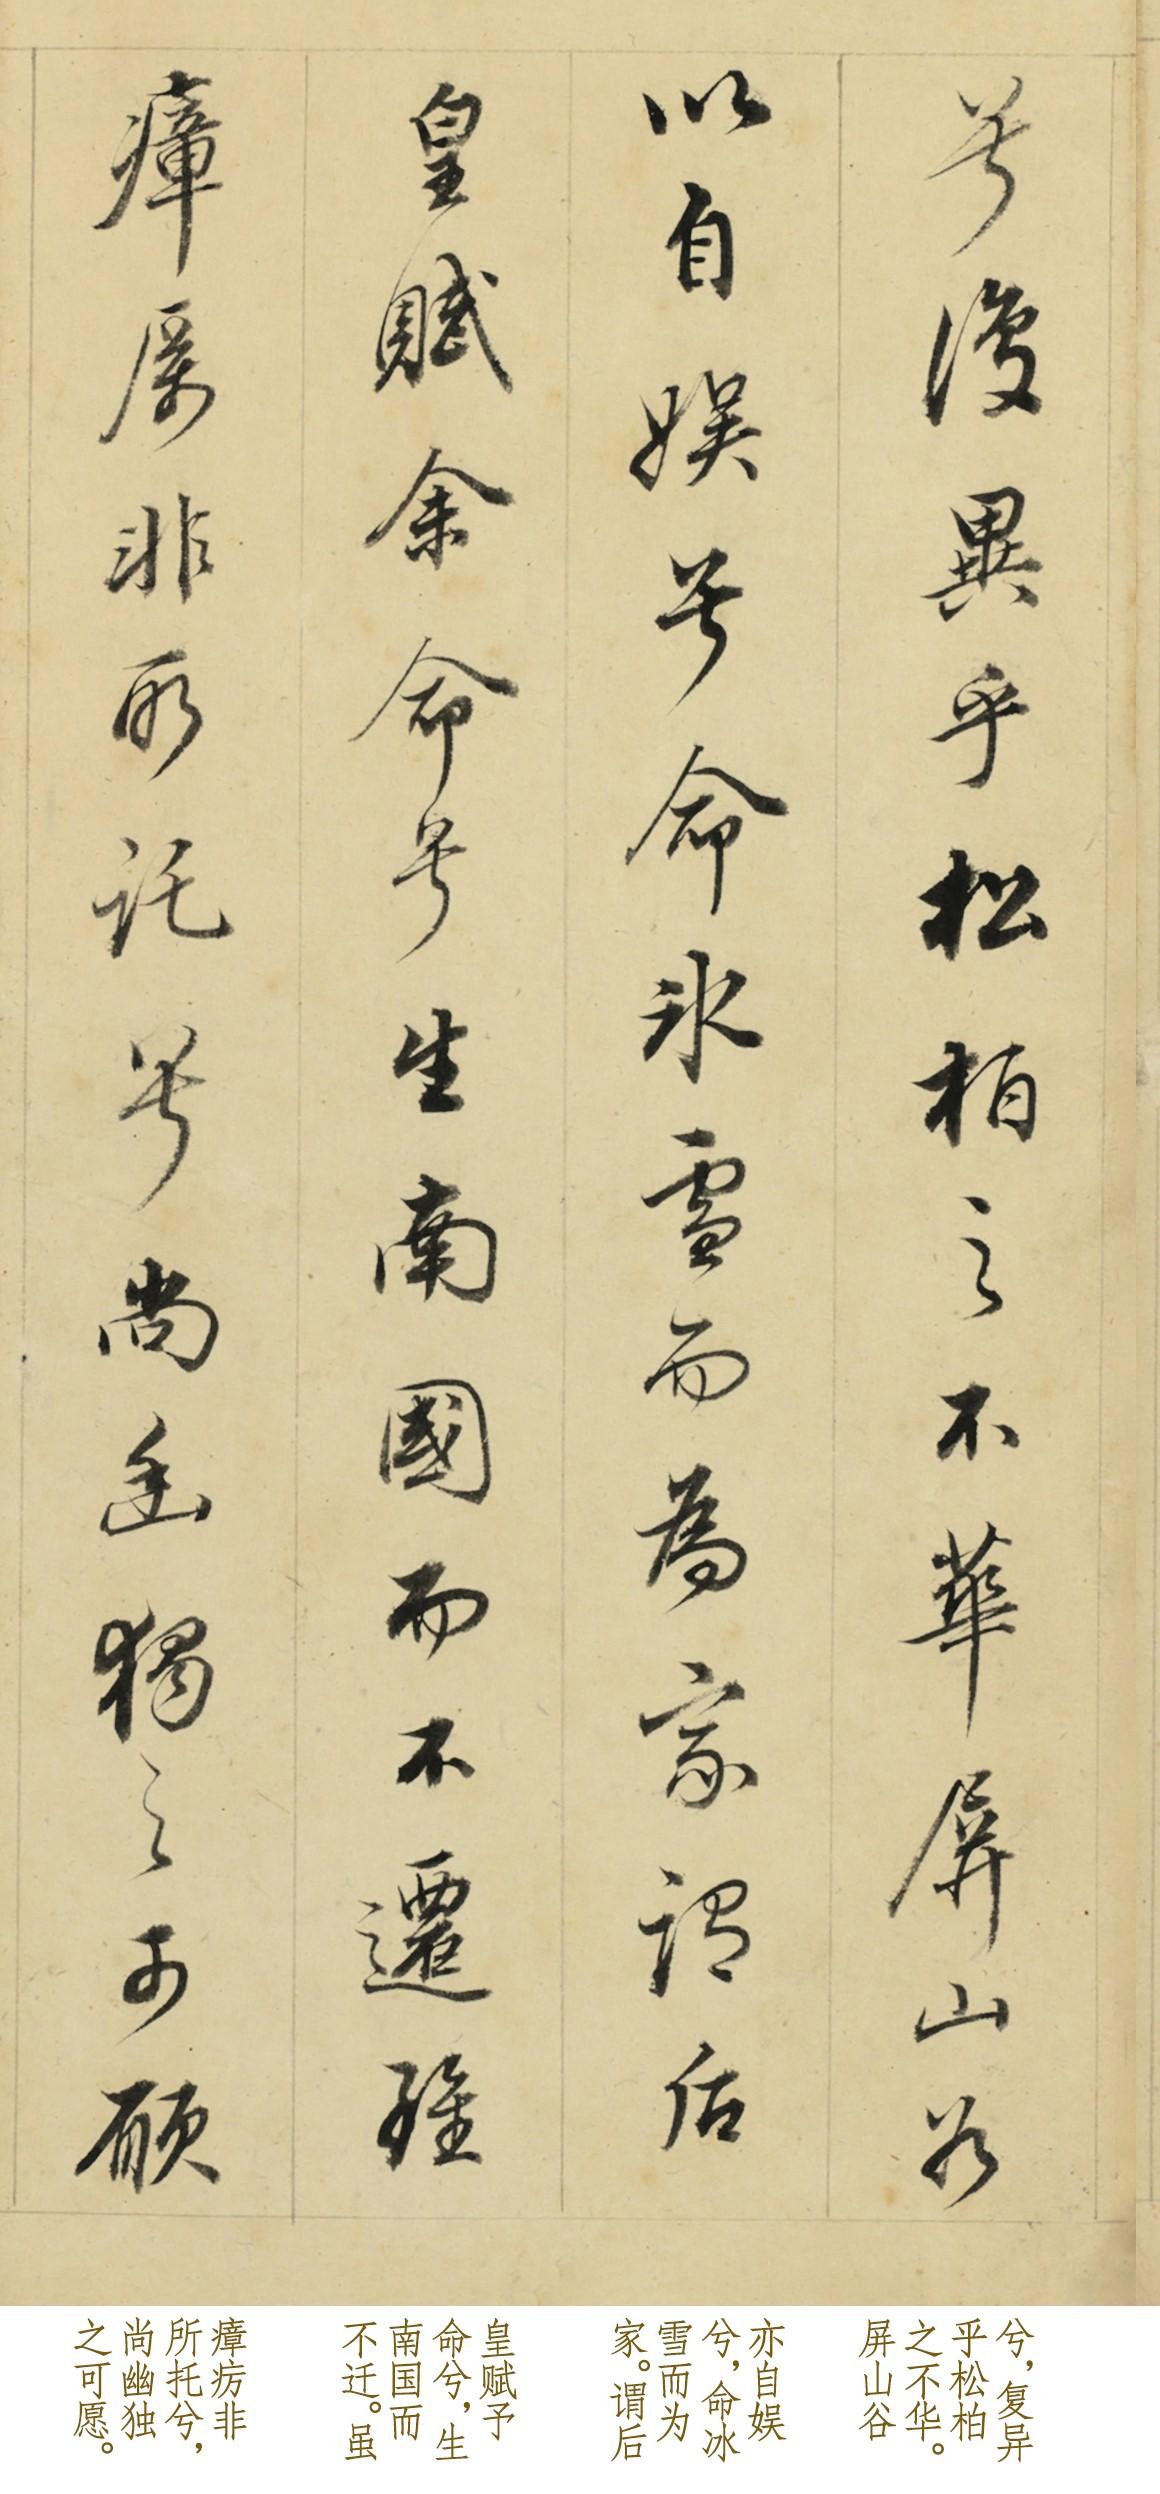 兮復異乎松柏之不華屏山谷
以自娱兮命氷雪而為家謂后
皇賦余命兮生南國而不遷雖
瘴厲非所託兮尚幽獨之可願
兮，复异
乎松柏
之不华。
屏山谷
亦自娱
兮，命冰
雪而为
家。谓后
皇赋予
命兮，生
南国而
不迁。虽
瘴疠非
所托兮，
尚幽独
之可愿。